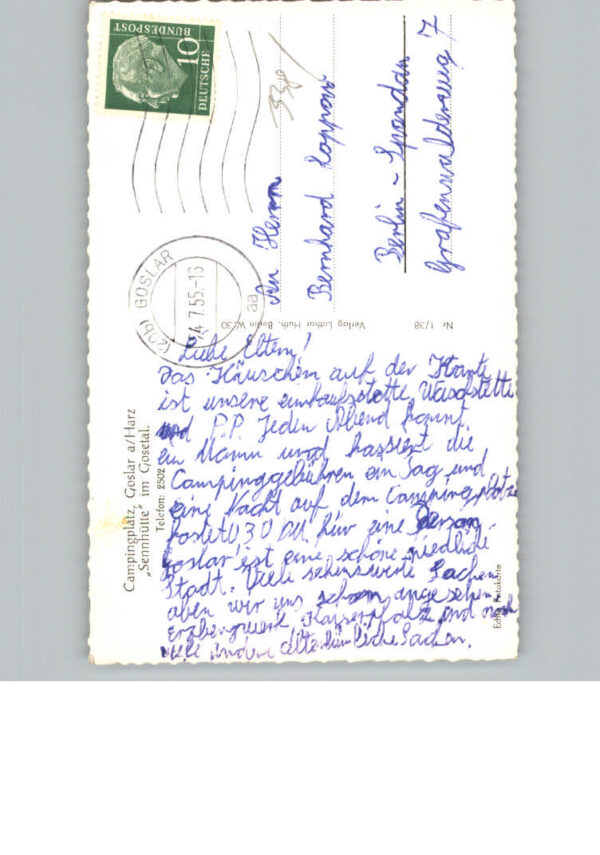 DEUTSCHE
BUNDESPOST
10
(20b) GOSLAR
24.7.55.-16
aa
An Herrn
Bernhard Koppow
Berlin - Spandau
Grafenwalderweg 7
Nr. 1/38
Verlag Lothar Huth, Berlin W. 30
Campingplatz, Goslar a/Harz
„Sennhütte" im Gosetal.
Telefon: 2502
Echte Fotokarte
Liebe Eltern!
Das Häuschen auf der Karte
ist unsere Einkaufsstätte Waschstelle
und P.P. Jeden Abend kommt
ein Mann und kassiert die
Campinggebühren ein Tag und
eine Nacht auf dem Campingplatz
kostet 0,30 DM für eine Person.
Goslar ist eine schöne niedliche
Stadt. Viele sehenswerte Sachen
haben wir uns schon angesehen.
Erzbergwerk Kaiserpfalz und noch
viele andere altertümliche Sachen.